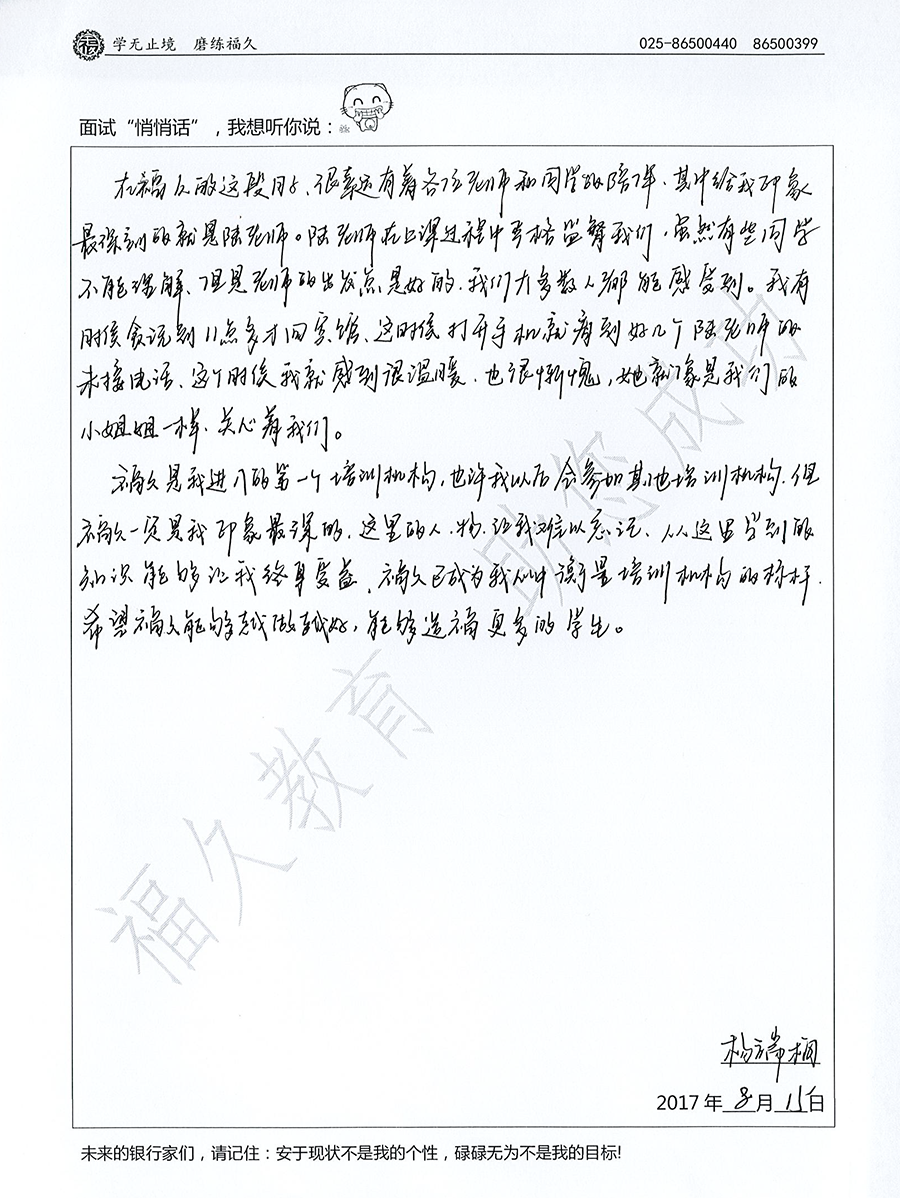 学无止境 磨练福久
025-86500440 86500399
面试“悄悄话”，我想听你说：
在福久的这段日子、很幸运有着各位老师和同学的陪伴、其中给我印象
最深刻的就是陆老师。陆老师在上课过程中严格监督我们，虽然有些同学
不能理解、但是老师的出发点是好的.我们大多数人都能感受到。我有
时侯会说到11点多才回宾馆、这时侯打开手机就看到好几个陆老师的
未接电话、这个时侯我就感到很温暖.也很惭愧，她就像是我们的
小姐姐一样、关心着我们。
福久是我进入的第一个培训机构，也许我以后会参加其他培训机构.但
福久一定是我印象最深的.这里的人.物.让我难以忘记、从这里学到的
知识能够让我终身受益、福久已成为我心中衡量培训机构的标杆.
希望福久能够越做越好，能够造福更多的学生。
助您成功
福久教育
杨端桐
2017年8月15日
未来的银行家们，请记住：安于现状不是我的个性，碌碌无为不是我的目标!